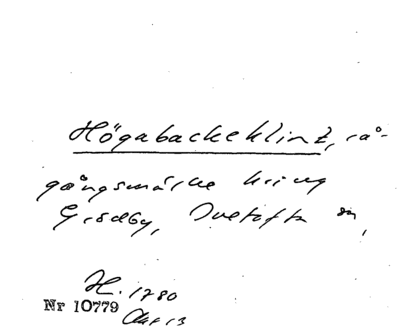 Högabackeklint, rå-
gångsmärke kring
Grödby, Tvetofta m,
H. 1780
Nr 10779